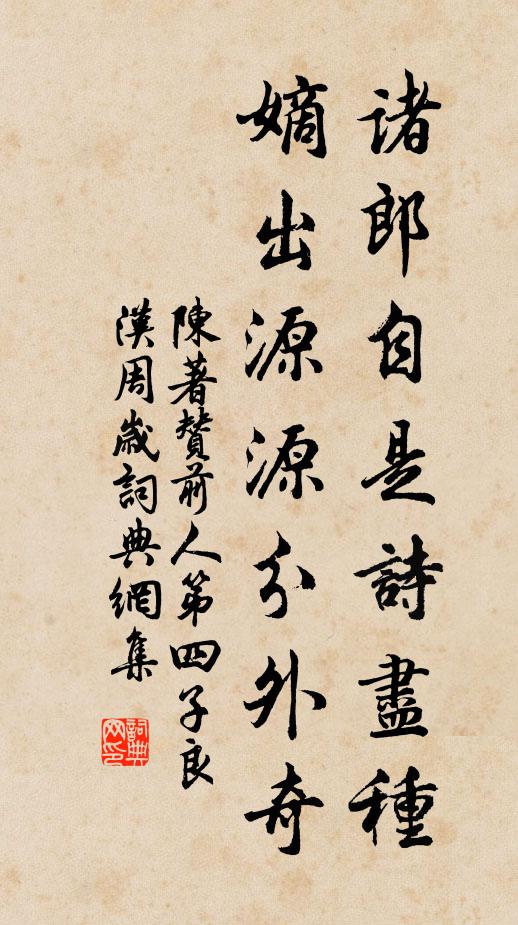 诸郎自是詩盡種
嫡出源源分外奇
陳著贊前人第四子良
漢周歲詞典網集
詞典网印